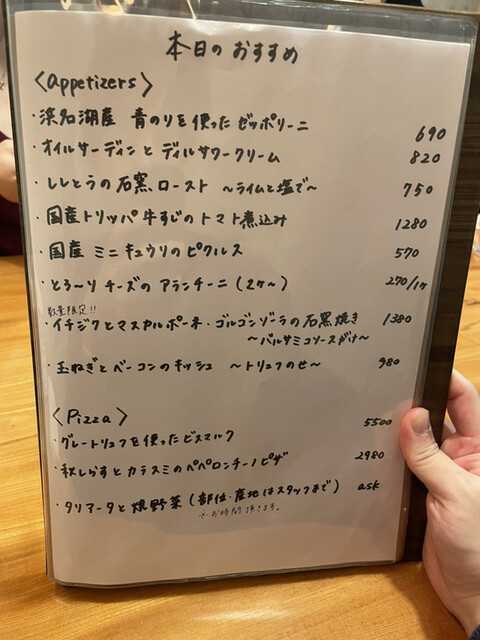 本日のおすすめ
〈appetizers〉
・浜名湖産 青のりを使った ゼッポリーニ 690
・オイルサーディンと ディルサワークリーム 820
・ししとうの石窯ロースト ～ライムと塩で～ 750
・国産トリッパ 牛すじの トマト煮込み 1280
・国産 ミニキュウリのピクルス 570
・とろ～り チーズの アランチーニ (2ヶ～) 270/1ヶ
数量限定!!
・イチジクとマスカルポーネ・ゴルゴンゾーラの石窯焼き 1380
～バルサミコソースがけ～
・玉ねぎとベーコンのキッシュ ～トリュフのせ～ 980
〈Pizza〉
・グレートリュフを使ったビスマルク 5500
・秋しらすとカラスミのペペロンチーノピザ 2980
・タリアータと焼野菜 (部位・産地はスタッフまで) ask
※お時間頂きます。